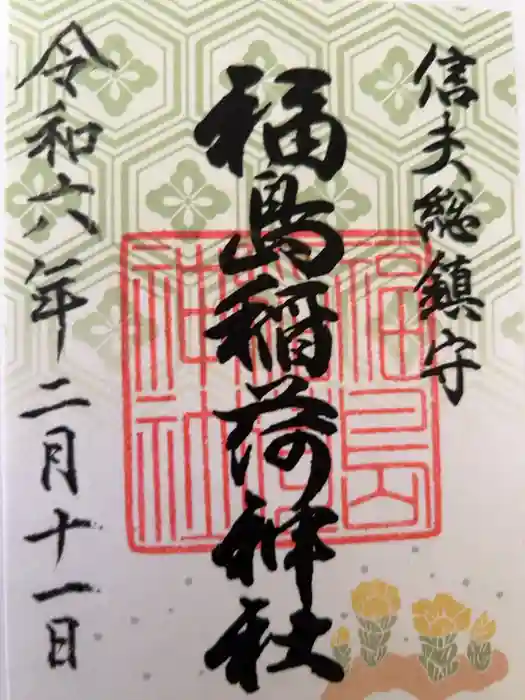 信夫総鎮守
福島稲荷神社
福島稲荷神社
令和六年二月十一日